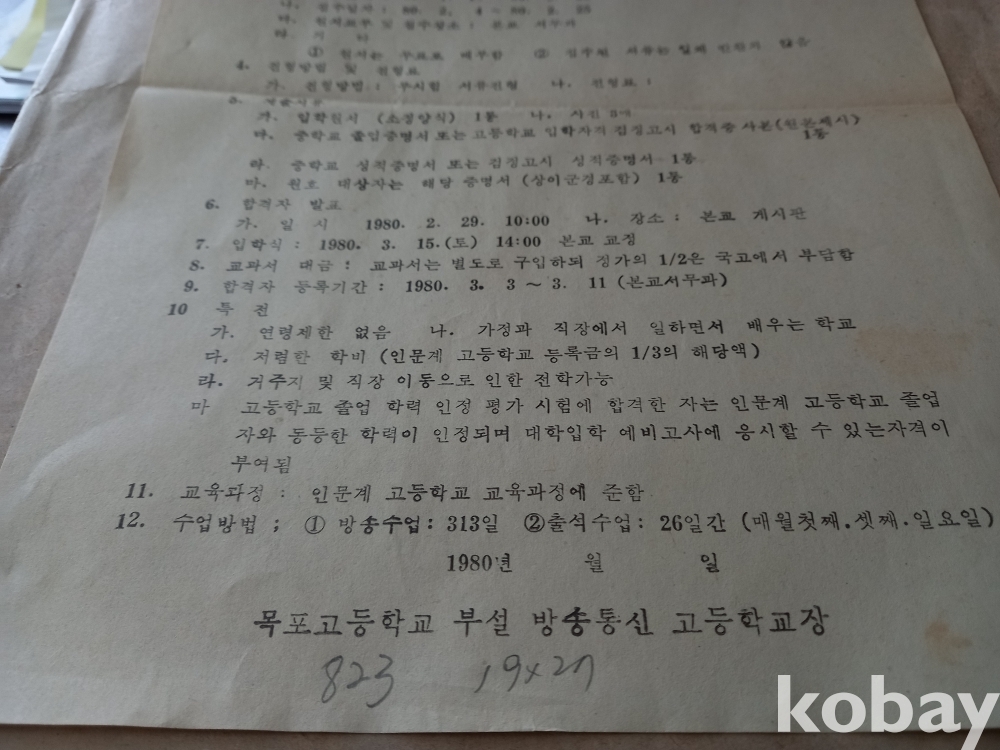 나. 접수일자 : 80. 2. 4 ~ 80. 2. 25
다. 원서교부 및 접수장소 : 본교 서무과
라. 기 타
① 원서는 무료로 배부함 ② 접수된 서류는 일체 반환치 않음
4. 전형방법 및 전형료
가. 전형방법 : 무시험 서류전형 나. 전형료 :
5. 제출서류
가. 입학원서 (소정양식) 1통 나. 사진 3매
다. 중학교 졸업증명서 또는 고등학교 입학자격 검정고시 합격증 사본(원본제시) 1통
라. 중학교 성적증명서 또는 검정고시 성적증명서 1통
마. 원호 대상자는 해당 증명서 (상이군경포함) 1통
6. 합격자 발표
가. 일 시 1980. 2. 29. 10:00 나. 장소 : 본교 게시판
7. 입학식 : 1980. 3. 15.(토) 14:00 본교 교정
8. 교과서 대금 : 교과서는 별도로 구입하되 정가의 1/2은 국고에서 부담함
9. 합격자 등록기간 : 1980. 3. 3 ~ 3. 11 (본교서무과)
10 특 전
가. 연령제한 없음 나. 가정과 직장에서 일하면서 배우는 학교
다. 저렴한 학비 (인문계 고등학교 등록금의 1/3의 해당액)
라. 거주지 및 직장 이동으로 인한 전학가능
마 고등학교 졸업 학력 인정 평가 시험에 합격한 자는 인문계 고등학교 졸업
자와 동등한 학력이 인정되며 대학입학 예비고사에 응시할 수 있는자격이
부여됨
11. 교육과정 : 인문계 고등학교 교육과정에 준함
12. 수업방법 ; ① 방송수업 : 313일 ②출석수업 : 26일간 (매월첫째.셋째.일요일)
1980년 월 일
목포고등학교 부설 방송통신 고등학교장
823 19×27
kobay